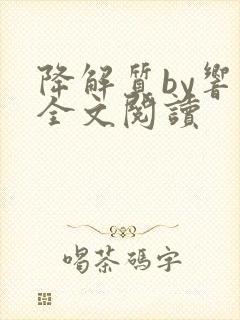 降解質by響
全文閱讀
喝茶碼字